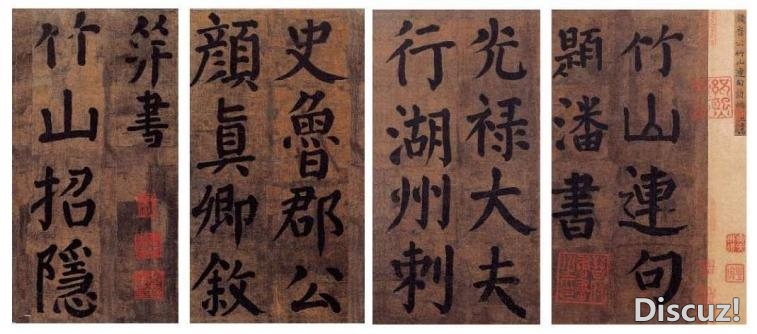 竹山連句
題潘書
光禄大夫
行湖州刺
史魯郡公
顔真卿敘
并書
竹山招隱
Discuz!